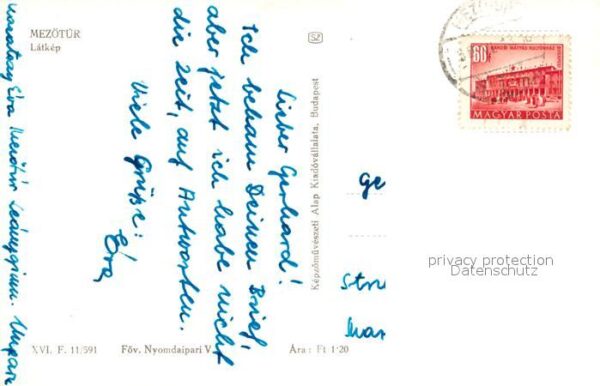 MEZŐTÚR
Látkép
Lieber Gerhard!
Ich bekam Deinen Brief,
aber jetzt ich habe nicht
die Zeit, auf Antworten.
Viele Grüße:
Éva
Éva Mezőtúr Leánygimn.
Képzőművészeti Alap Kiadóvállalata, Budapest
SZ
60
RÁKOSI MÁTYÁS KULTÚRHÁZ
MAGYAR POSTA
Ge
Str
privacy protection
Datenschutz
XVI. F. 11/591
Főv. Nyomdaipari V.
Ára: Ft 1·20